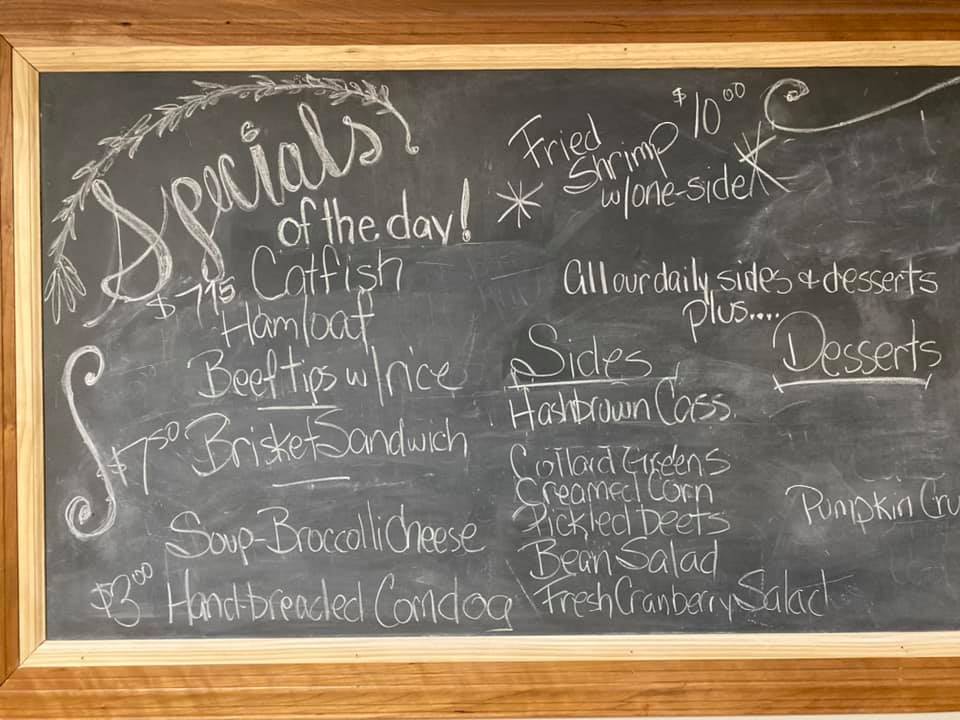 Specials
of the day!
$7.95 Catfish
Hamloaf
Beef tips w/rice
$7.50 Brisket Sandwich
Soup-Broccolli Cheese
$3.00 Hand-breaded Corndog
$10.00
Fried
Shrimp
w/one-side
All our daily sides & desserts
plus....
Sides
Hashbrown Cass.
Collard Greens
Creamed Corn
Pickled beets
Bean Salad
Fresh Cranberry Salad
Desserts
Pumpkin Cru